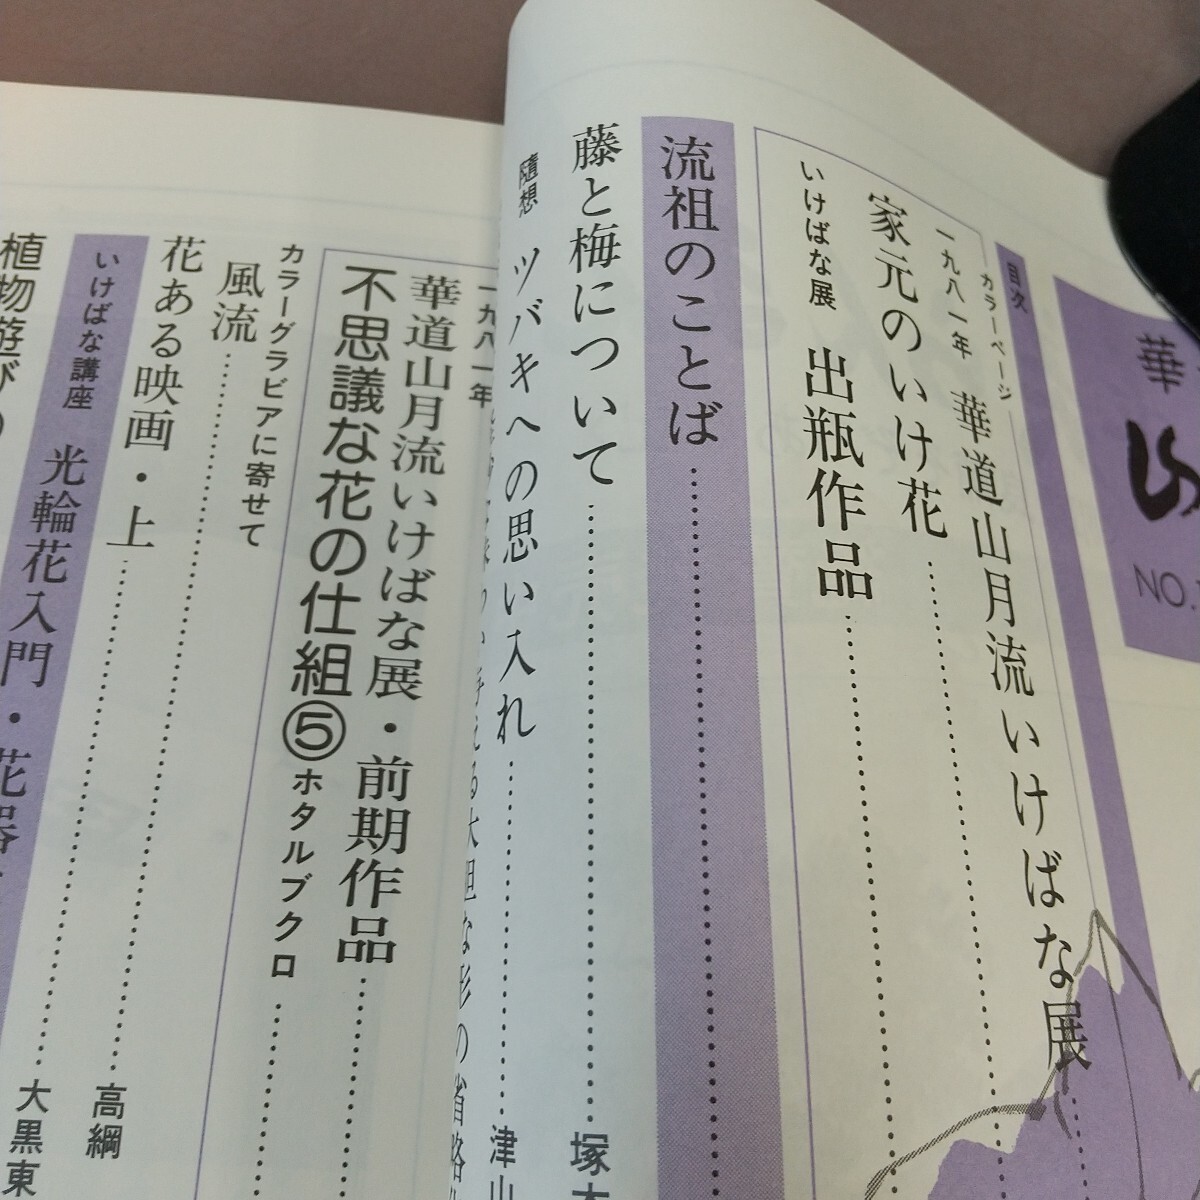 華
NO.
目次
カラーページ
一九八一年 華道山月流いけばな展
家元のいけ花
いけばな展 出瓶作品
流祖のことば
藤と梅について 塚本
隨想 ツバキへの思い入れ 津山
大胆な形の省略
一九八一年
華道山月流いけばな展・前期作品
不思議な花の仕組⑤ホタルブクロ
カラーグラビアに寄せて
風流
花ある映画・上 高綱
いけばな講座 光輪花入門・花器 大黒東
植物遊びの